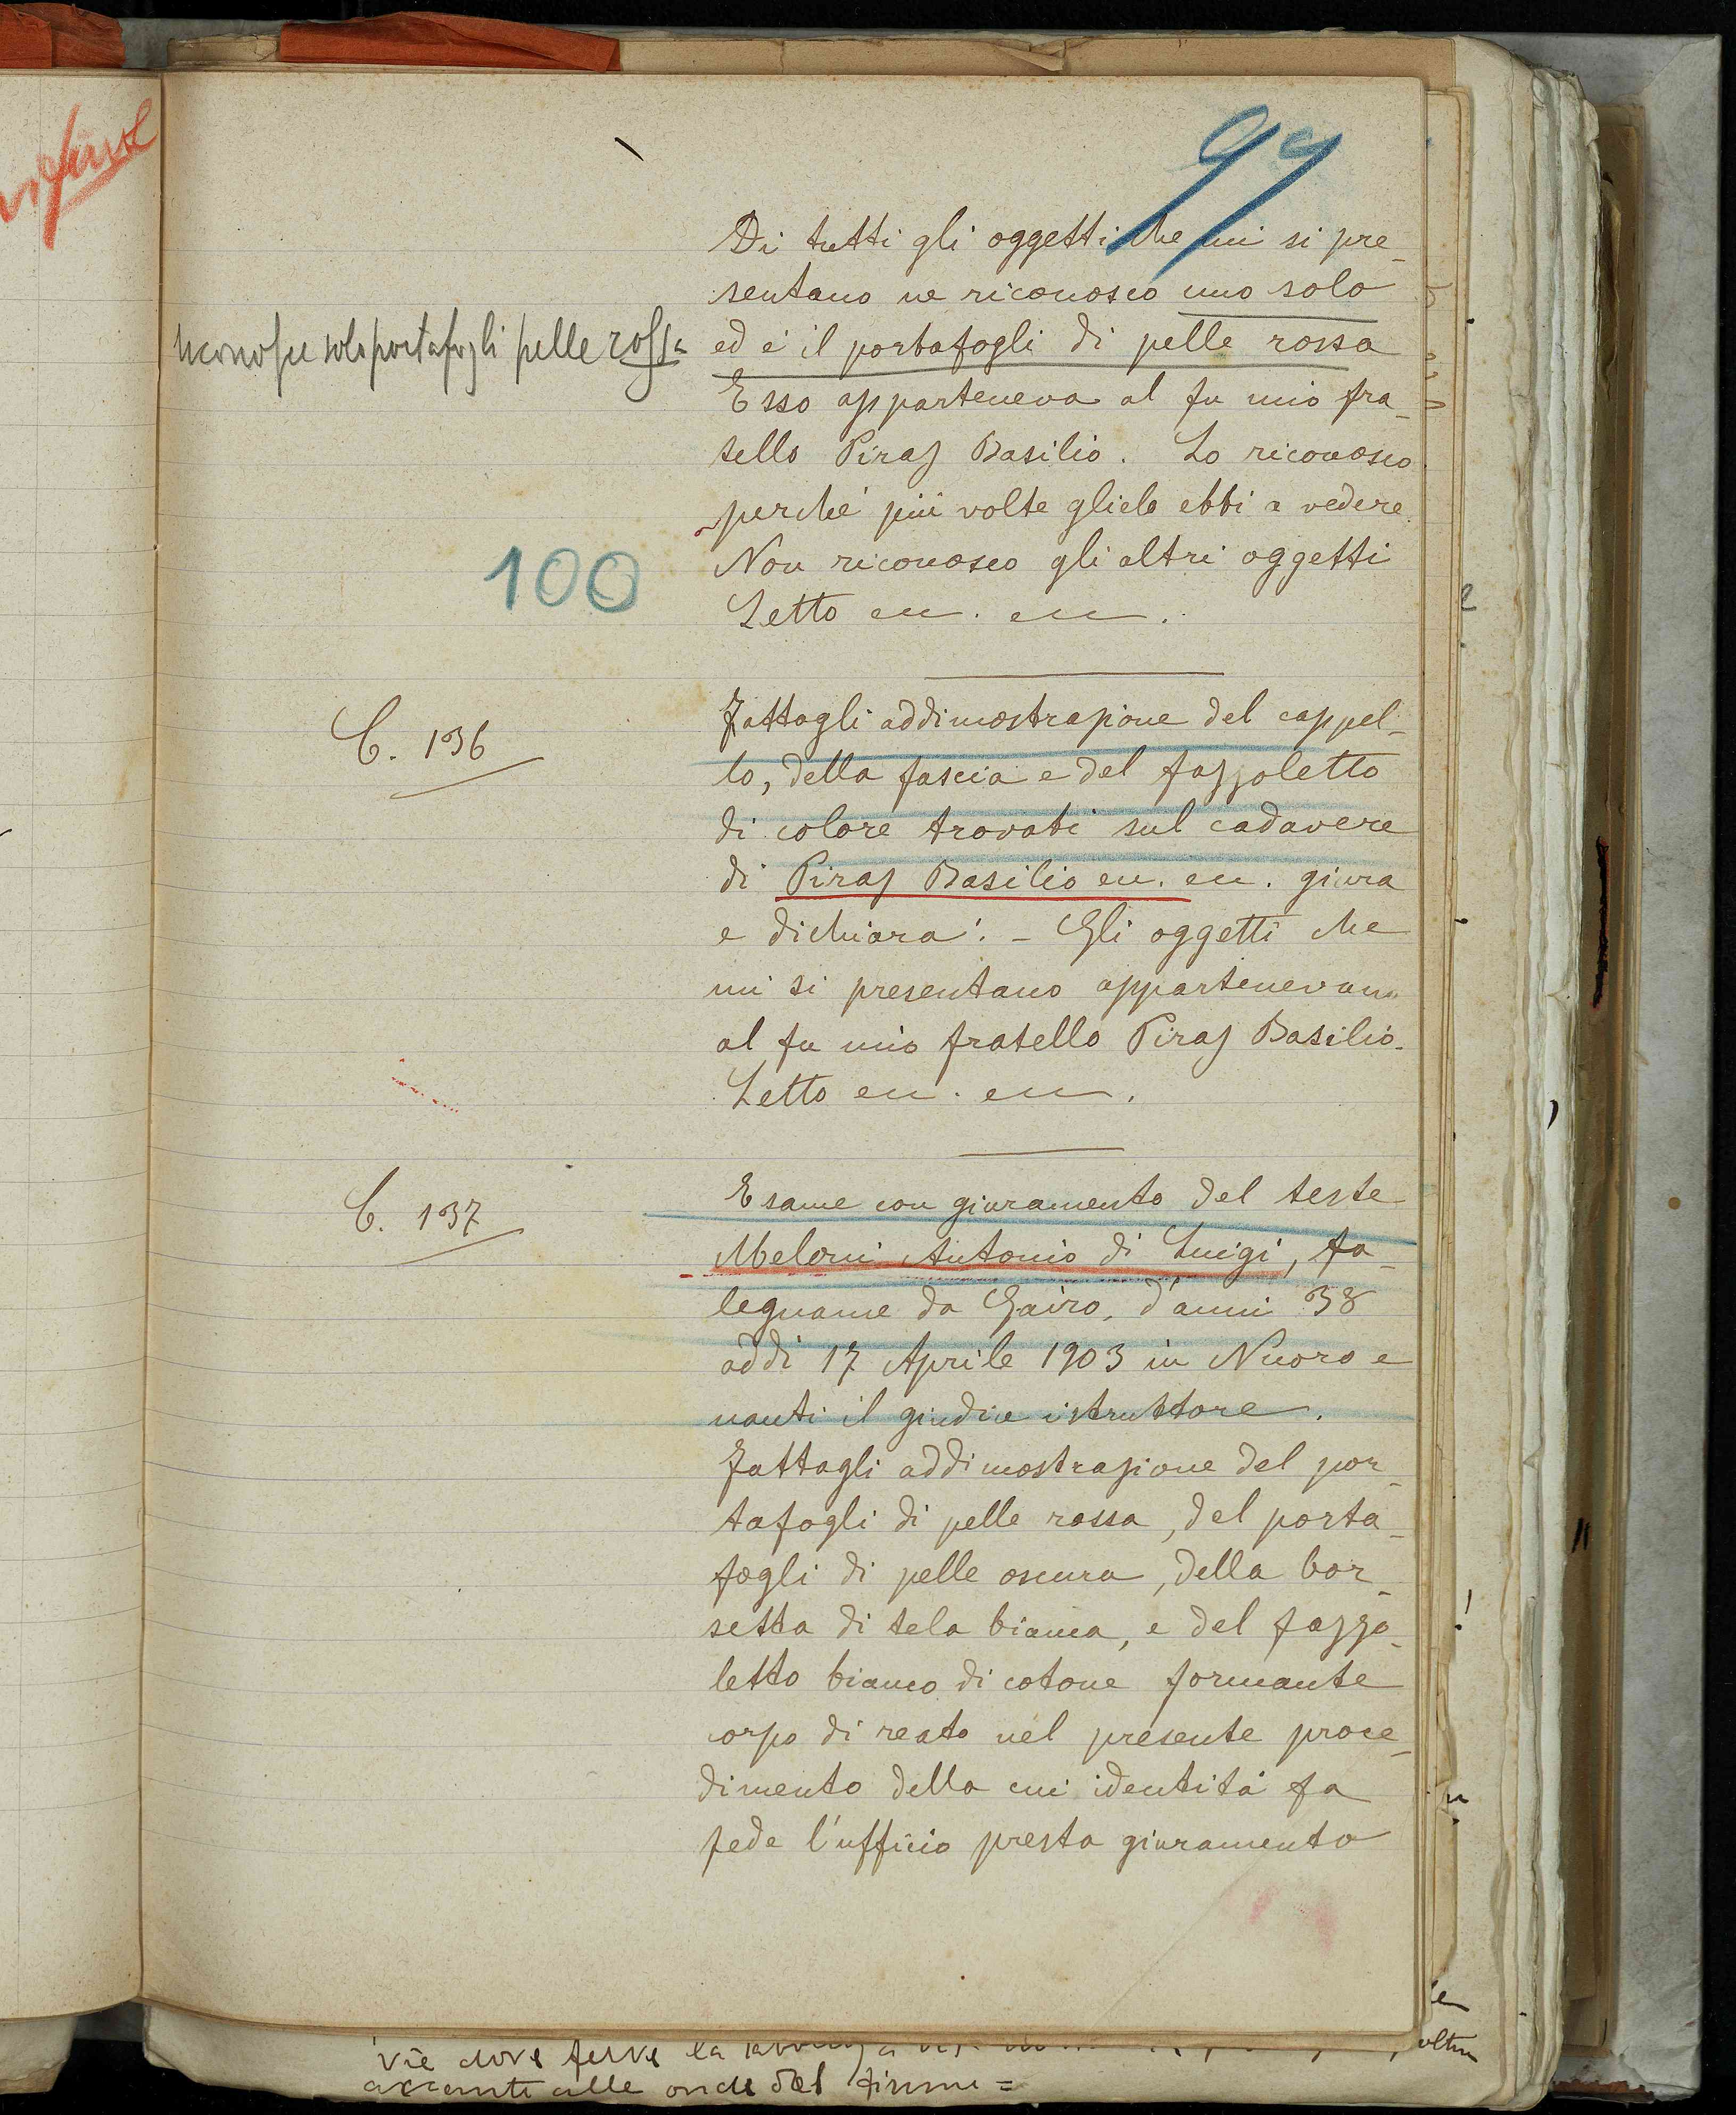 99
Di tutti gli oggetti che mi si pre_
sentano ne riconosco uno solo
riconosce solo portafogli pelle rossa
ed è il portafogli di pelle rossa
Esso apparteneva al fu mio fra_
tello Piras Basilio. Lo riconosco
perché più volte glielo ebbi a vedere.
Non riconosco gli altri oggetti
100
Letto ecc. ecc.
C. 136
Fattagli addimostrazione del cappel_
lo, della fascia e del fazzoletto
di colore trovati sul cadavere
di Piras Basilio ecc. ecc. giura
e dichiara: - Gli oggetti che
mi si presentano appartenevano
al fu mio fratello Piras Basilio.
Letto ecc. ecc.
C. 137
Esame con giuramento del teste
Meloni Antonio di Luigi, fa_
legname da Gairo, d'anni 38
addi 17 Aprile 1903 in Nuoro e
nanti il giudice istruttore.
Fattagli addimostrazione del por_
tafogli di pelle rossa, del porta_
fogli di pelle oscura, della bor_
setta di tela bianca, e del fazzo_
letto bianco di cotone formante
corpo di reato nel presente proce_
dimento della cui identità fa
fede l'ufficio presta giuramento
oltre
accanto alle onde del fiume =